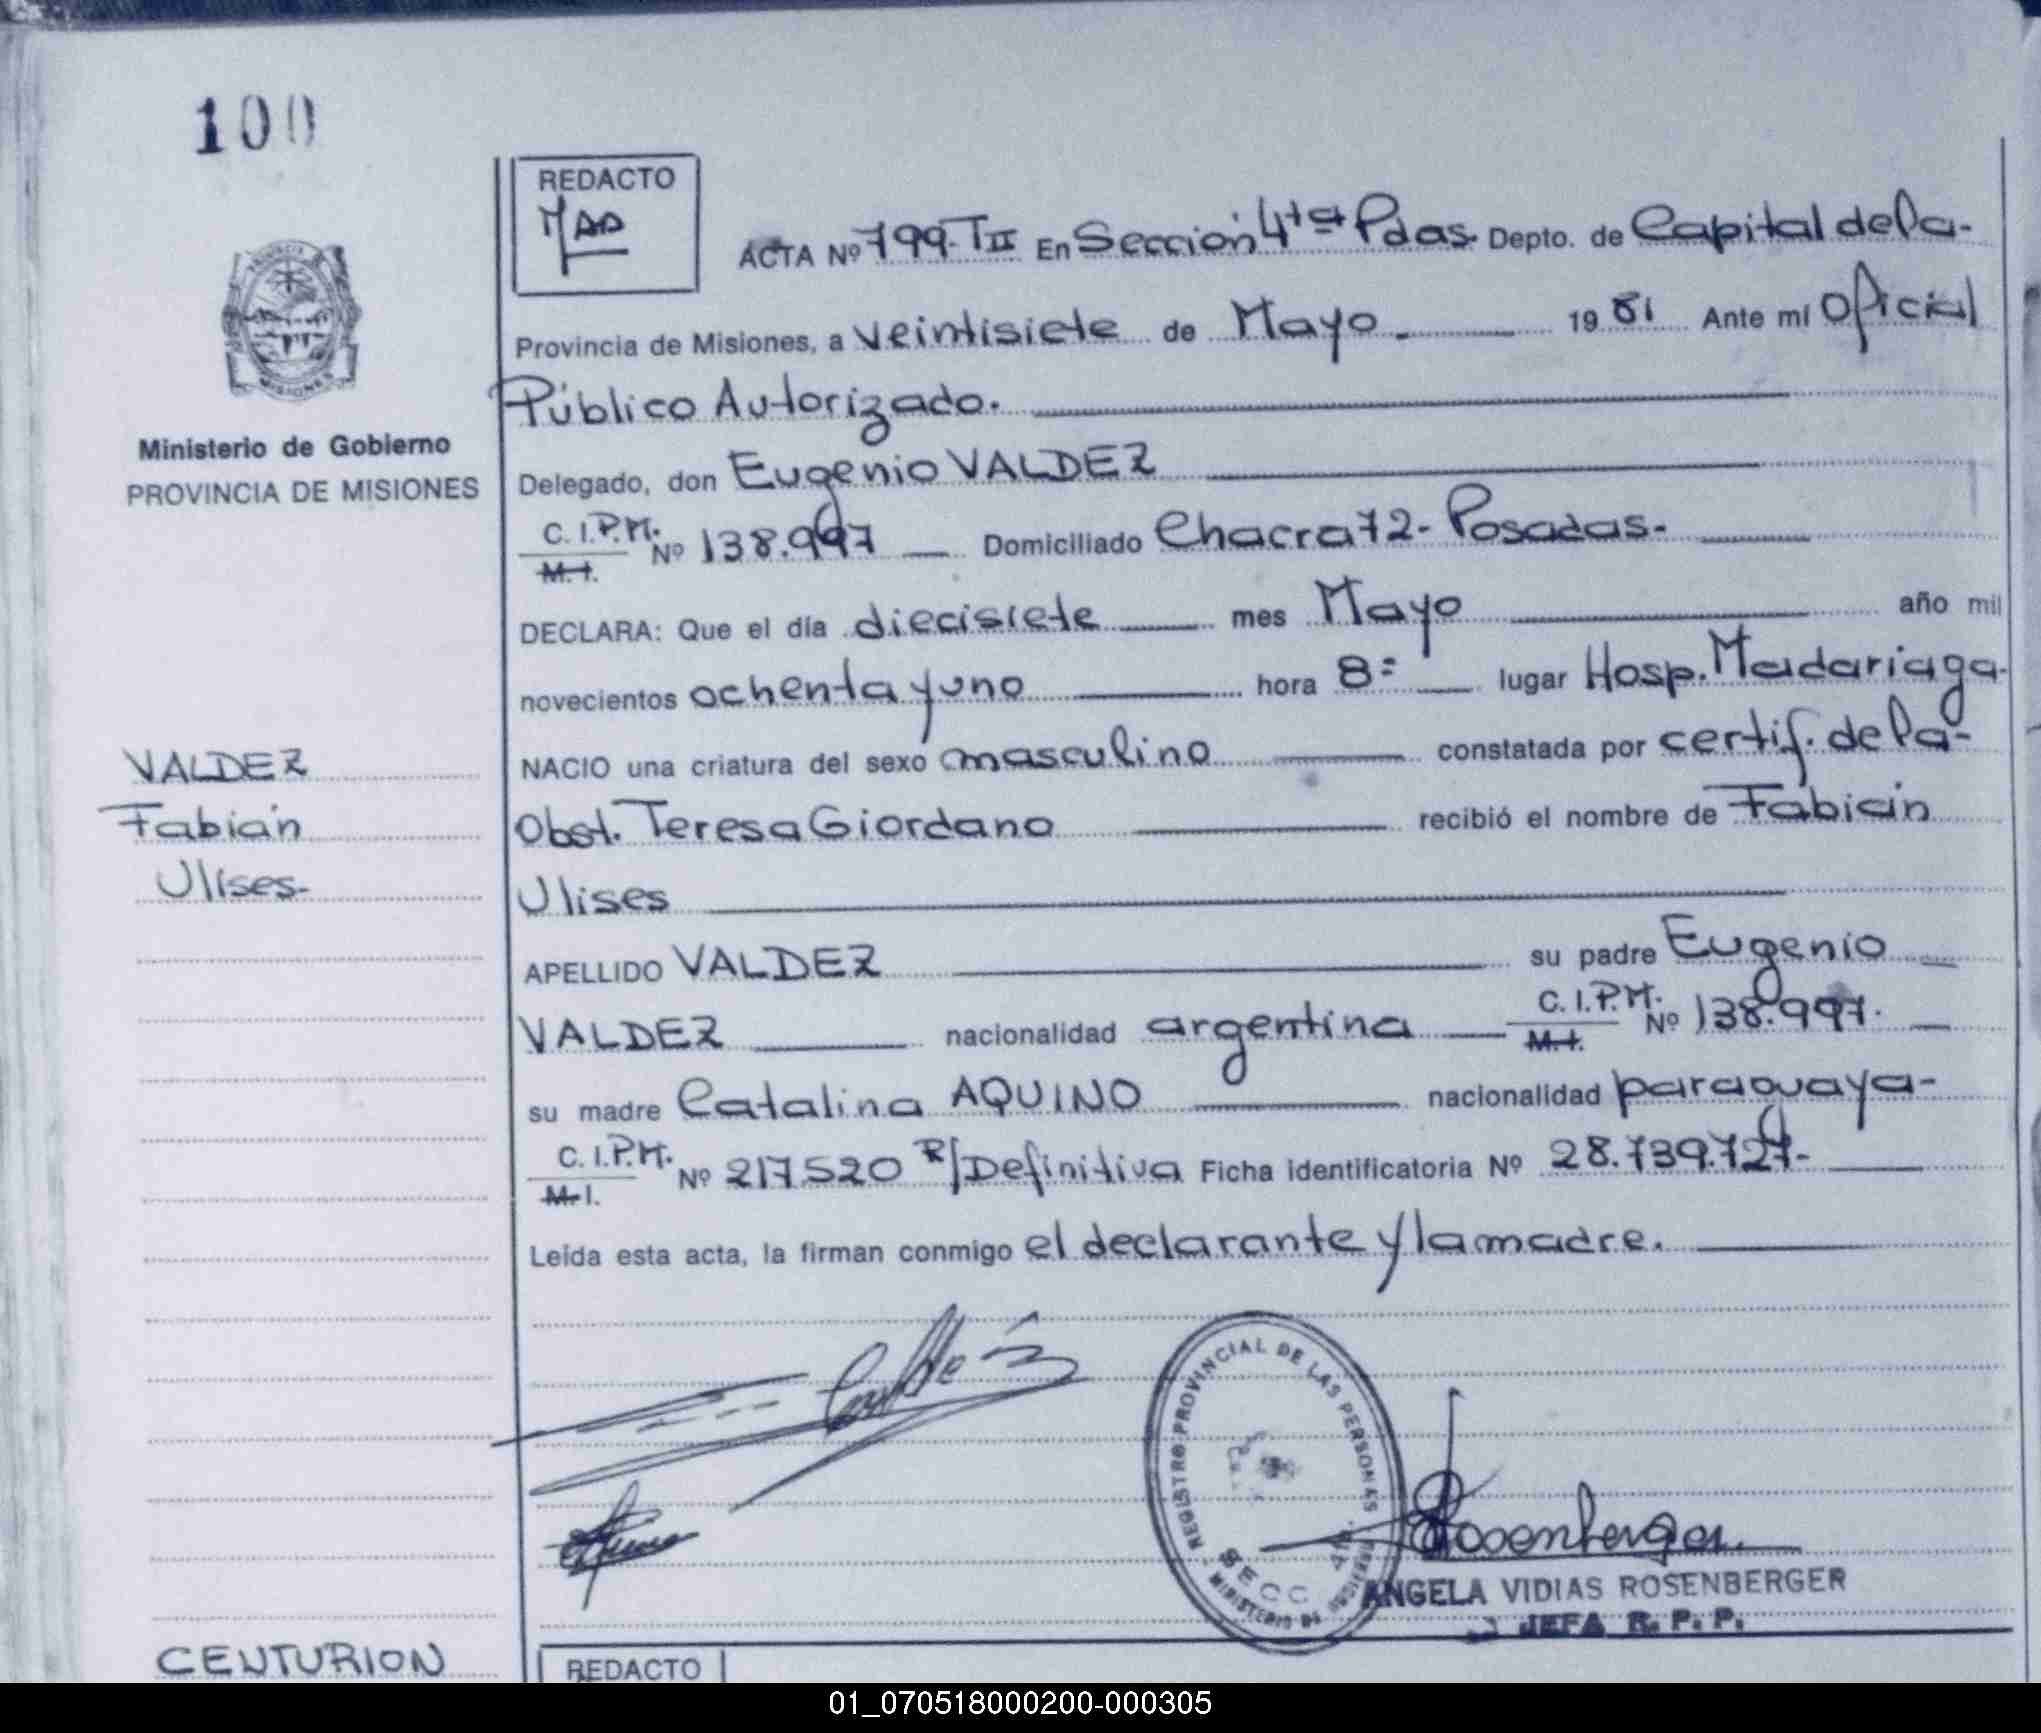 100
REDACTO
ACTA Nº 799-TII En Sección 4ta Pdas. Depto. de Capital de la-
Provincia de Misiones, a veintisiete de Mayo. 19 81 Ante mí Oficial
Público Autorizado.
PROVINCIA MISIONES
Ministerio de Gobierno
PROVINCIA DE MISIONES
Delegado, don Eugenio VALDEZ
C.I.P.M. Nº 138.997 Domiciliado Chacra 72- Posadas-
M. I.
DECLARA: Que el día diecisiete mes Mayo año mil
novecientos ochenta y uno hora 8= lugar Hosp. Madariaga-
NACIO una criatura del sexo masculino constatada por certif. de la-
Obst. Teresa Giordano recibió el nombre de Fabián
Ulises
VALDEZ
Fabián
Ulises-
APELLIDO VALDEZ su padre Eugenio
VALDEZ nacionalidad argentina C.I.P.M. Nº 138.997.
M. I.
su madre Catalina AQUINO nacionalidad paraguaya-
C.I.P.M. Nº 217520 R/Definitiva Ficha identificatoria Nº 28.739.727-
M. I.
Leída esta acta, la firman conmigo el declarante y la madre.
REGISTRO PROVINCIAL DE LAS PERSONAS
SECC. 4ta.
MINISTERIO DE GOBIERNO
Rosenberger
ANGELA VIDIAS ROSENBERGER
JEFA R. P. P.
CENTURION
REDACTO
01_070518000200-000305